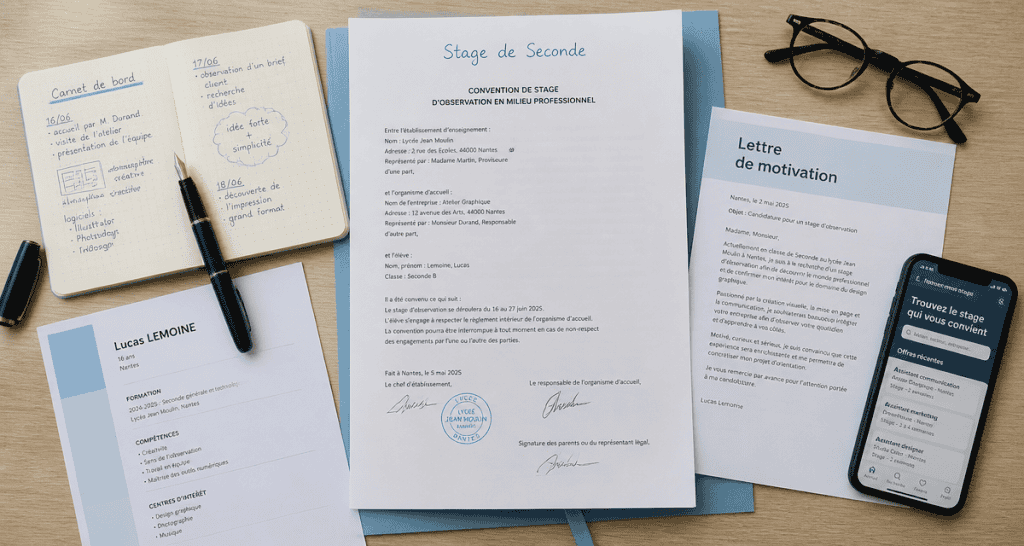 Carnet de bord
16/06
• accueil par M. Durand
• visite de l'atelier
• présentation de l'équipe
logiciels :
• Illustrator
17/06
• observation d'un brief
client
• recherche
d'idées
idée forte
+
simplicité
18/06
• découverte de
l'impression
• grand format
Lucas LEMOINE
16 ans
Nantes
FORMATION
2024-2025 : Seconde générale et
Lycée Jean Moulin, Nantes
COMPÉTENCES
• Créativité
• Sens de l'observation
• Travail en équipe
• Maîtrise des outils numériques
CENTRES D'INTÉRÊT
• Design graphique
• Photographie
• Musique
Stage de Seconde
CONVENTION DE STAGE
D'OBSERVATION EN MILIEU PROFESSIONNEL
Entre l'établissement d'enseignement :
Nom : Lycée Jean Moulin
Adresse : 2 rue des Écoles, 44000 Nantes
Représenté par : Madame Martin, Proviseure
d'une part,
et l'organisme d'accueil :
Nom de l'entreprise : Atelier Graphique
Adresse : 12 avenue des Arts, 44000 Nantes
Représenté par : Monsieur Durand, Responsable
d'autre part,
et l'élève :
Nom, prénom : Lemoine, Lucas
Classe : Seconde B
Il a été convenu ce qui suit :
Le stage d'observation se déroulera du 16 au 27 juin 2025.
L'élève s'engage à respecter le règlement intérieur de l'organisme d'accueil.
La convention pourra être interrompue à tout moment en cas de non-respect
des engagements par l'une ou l'autre des parties.
Fait à Nantes, le 5 mai 2025
Le chef d'établissement,
Le responsable de l'organisme d'accueil,
LYCÉE
LYCÉE
JEAN MOULIN
NANTES
NANTES
Signature des parents ou du représentant légal,
Lettre
de motivation
Nantes, le 2 mai 2025
Objet : Candidature pour un stage d'observation
Madame, Monsieur,
Actuellement en classe de Seconde au lycée Jean
Moulin à Nantes, je suis à la recherche d'un stage
d'observation afin de découvrir le monde professionnel
et de confirmer mon intérêt pour le domaine du design
graphique.
Passionné par la création visuelle, la mise en page et
la communication, je souhaiterais beaucoup intégrer
votre entreprise afin d'observer votre quotidien
et d'apprendre à vos côtés.
Motivé, curieux et sérieux, je suis convaincu que cette
expérience sera enrichissante et me permettra de
concrétiser mon projet d'orientation.
Je vous remercie par avance pour l'attention portée
à ma candidature.
Lucas Lemoine
Trouvez le stage
qui vous convient
Offres récentes
Assistant communication
Stage - 2 semaines
Assistant marketing
Assistant designer
Stage - 2 semaines